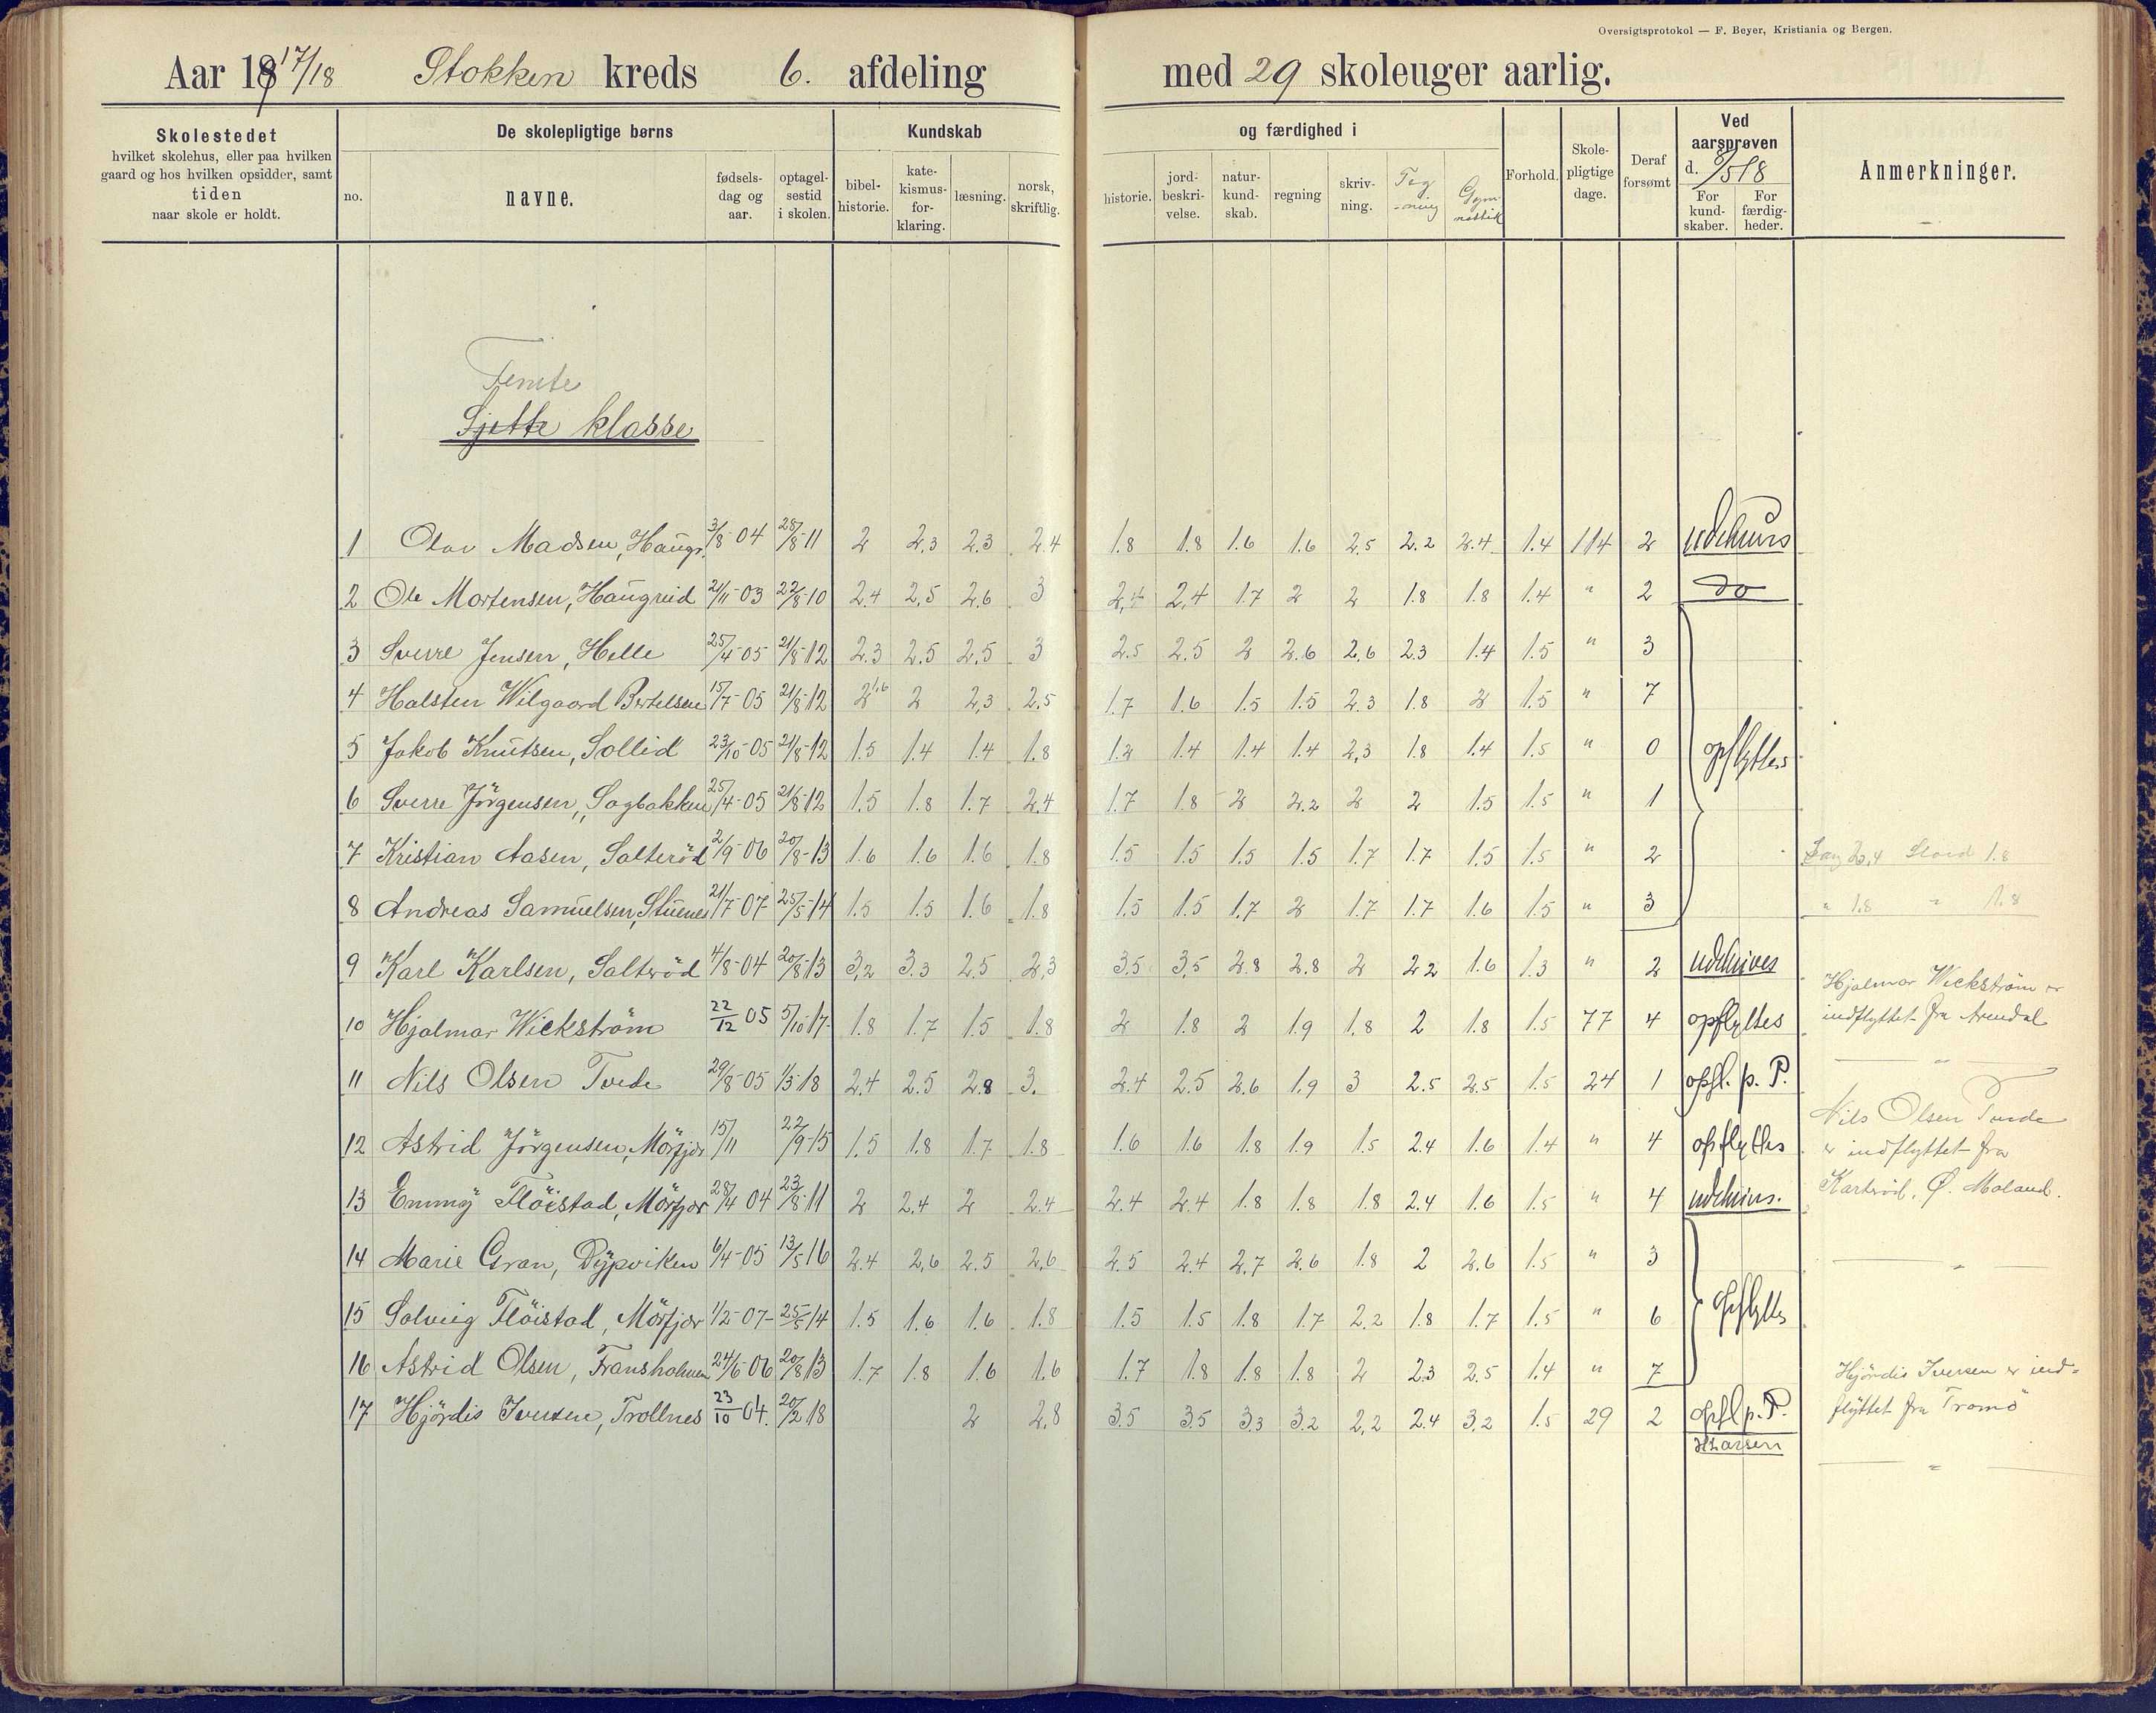 Oversigtsprotokol — F. Beyer, Kristiania og Bergen.
Aar 1917/18 Stokken kreds 6. afdeling med 29 skoleuger aarlig.
Skolestedet
hvilket skolehus, eller paa hvilken
gaard og hos hvilken opsidder, samt
tiden
naar skole er holdt.
De skolepligtige børns
no.
navne.
fødsels-
dag og
aar.
optagel-
sestid
i skolen.
Kundskab
bibel-
historie.
kate-
kismus-
for-
klaring.
læsning.
norsk,
skriftlig.
og færdighed i
historie.
jord-
beskri-
velse.
natur-
kund-
skab.
regning
skriv-
ning.
Teg
-ning
Gym-
nastik
Forhold.
Skole-
pligtige
dage.
Deraf
forsømt
Ved
aarsprøven
d. /5 18
For
kund-
skaber.
For
færdig-
heder.
Anmerkninger.
Femte
Sjette klasse
1 Olav Madsen, Haugr. 3/8-04 28/8-11 2 2.3 2.3 2.4 1.8 1.8 1.6 1.6 2.5 2.2 2.4 1.4 114 2 udskrives
2 Ole Mortensen, Haugreid 21/11-03 22/8-10 2.4 2.5 2.6 3 2,4 2,4 1.7 2 2 1.8 1.8 1.4 " 2 do
3 Sverre Jensen, Helle 25/4-05 21/8-12 2.3 2.5 2.5 3 2.5 2.5 2 2.6 2,6 2.3 1.4 1.5 " 3
4 Halsten Wilgaard Bertelsen 15/7-05 21/8-12 2 1,6 2 2,3 2.5 1.7 1.6 1.5 1.5 2.3 1.8 2 1.5 " 7
5 Jakob Knutsen, Sollid 23/10-05 21/8-12 1.5 1.4 1.4 1.8 1.2 1.4 1.4 1.4 2,3 1.8 1.4 1.5 " 0 opflyttes
6 Sverre Jörgensen, Sagbakken 25/4-05 21/8-12 1.5 1.8 1.7 2.4 1.7 1.8 2 2.2 2 2 1.5 1.5 " 1
7 Kristian Aasen, Salteröd 2/9-06 20/8-13 1.6 1.6 1.6 1.8 1.5 1.5 1.5 1.5 1.7 1.7 1.5 1.5 " 2 Sang 2,4 Sloid 1.8
8 Andreas Samuelsen, Stuenes 21/7-07 25/5-14 1.5 1.5 1.6 1.8 1.5 1.5 1.7 2 1.7 1.7 1.6 1.5 " 3 " 1.8 " 1.8
9 Karl Karlsen, Salteröd 4/8-04 20/8-13 3,2 3.3 2.5 2,3 3.5 3,5 2.8 2.8 2 2.2 1.6 1.3 " 2 udskrives
10 Hjalmar Wickström 22/12 05 5/10-17 1.8 1.7 1.5 1.8 2 1.8 2 1.9 1.8 2 1.8 1.5 77 4 opflyttes
Hjalmar Wickström er
indflyttet fra Arendal
11 Nils Olsen Tvede 29/8-05 1/3-18 2.4 2.5 2.8 3. 2.4 2.5 2.6 1.9 3 2.5 2.5 1.5 24 1 opfl. p. P.
12 Astrid Jörgensen, Mörfjær 15/11 22/9-15 1.5 1.8 1.7 1.8 1.6 1.6 1.8 1.9 1.5 2.4 1.6 1.4 " 4 opflyttes
Nils Olsen Tvede
er indflyttet fra
Karteröd, Ø. Moland.
13 Emmy Flöistad, Mörfjær 28/4 04 23/8-11 2 2.4 2 2.4 2.4 2.4 1.8 1.8 1.8 2.4 1.6 1.5 " 4 udskrives.
14 Marie Gran, Dypviken 6/4-05 13/5 16 2.4 2,6 2.5 2,6 2.5 2.4 2.7 2.6 1.8 2 2.6 1.5 " 3
15 Solveig Flöistad, Mörfjær 1/2-07- 25/5 14 1.5 1.6 1.6 1.8 1.5 1.5 1.8 1.7 2.2 1.8 1.7 1.5 " 6 opflyttes
16 Astrid Olsen, Fransholmen 24/6-06 20/8 13 1.7 1.8 1.6 1.6 1.7 1.8 1.8 1.8 2 2.3 2.5 1.4 " 7
17 Hjördis Iversen, Trollnes 23/10 04. 20/2 18 2 2,8 3.5 3.5 3.3 3.2 2,2 2.4 3,2 1.5 29 2 opfl p. P.
Hjördis Iversen er ind-
flyttet fra Tromö
HLarsen